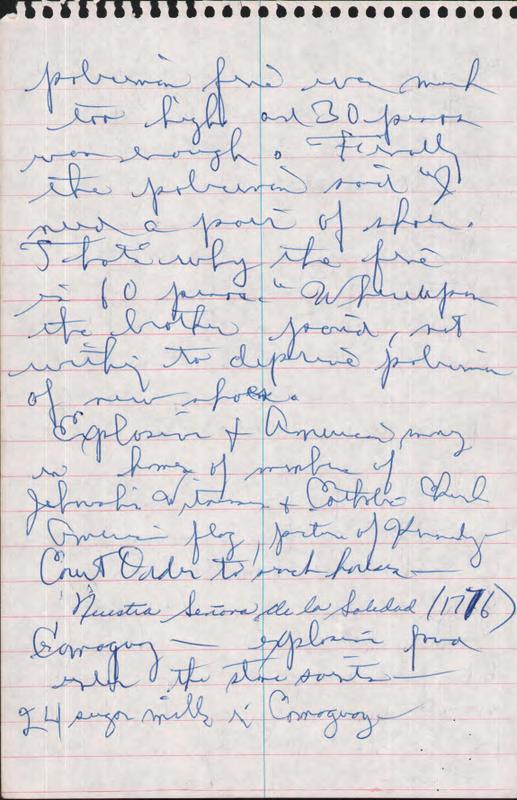 policeman fine was much
too high and 30 pesos
was enough. Finally
the policeman said "I
need a pair of shoes.
That's why the fine
is 60 pesos." Whereupon
the brother paid, not
wishing to deprive policeman
of new shoes.
Explosive & American
in homes of members of
Jehovah's Witnesses & Catholic Church
American flag, picture of Kennedy—
Court Order to search houses—
Nuestra Señora de la Soledad (1776)
Camaguey — explosive found
with the stone saints—
24 sugar mills in Camaguey